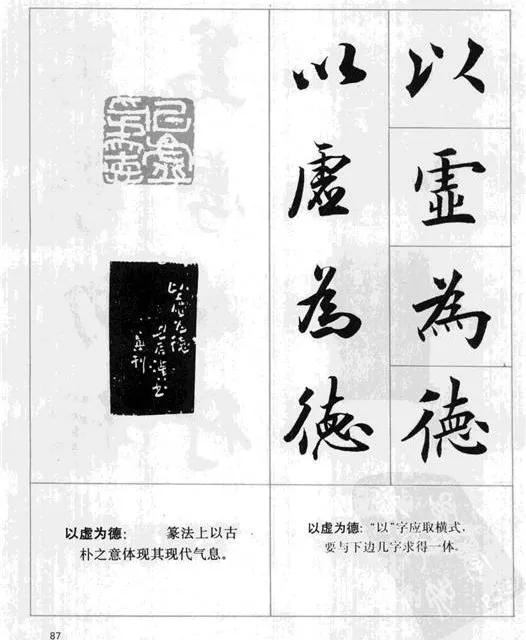 以虚為德
以虚為德
以虚为德
以虚为德：“以”字应取横式，
要与下边几字求得一体。
以虚为德： 篆法上以古
朴之意体现其现代气息。
87